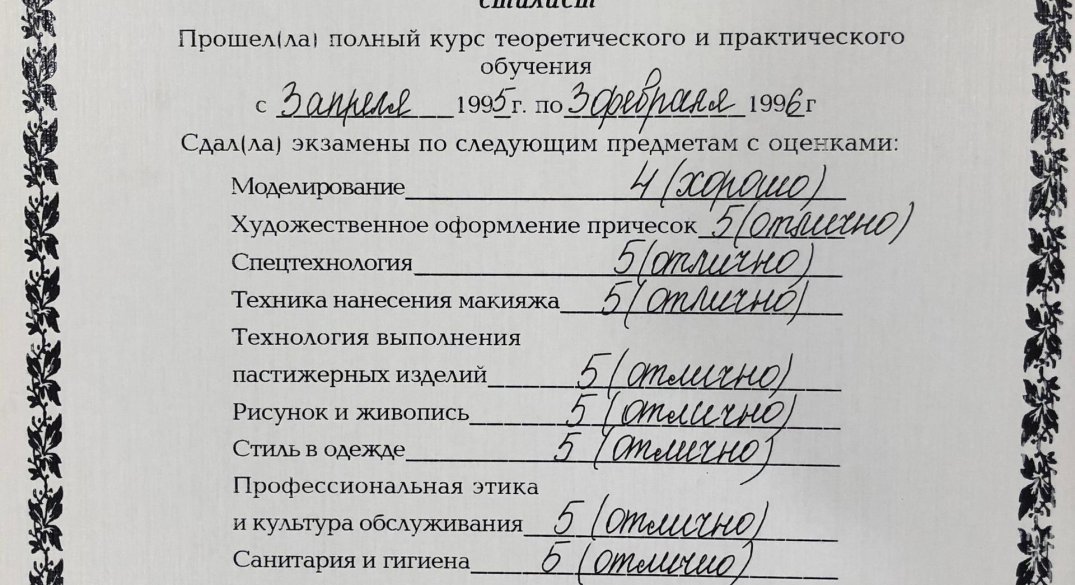 стилист
Прошел(ла) полный курс теоретического и практического
обучения
с 3 апреля 1995г. по 3 февраля 1996г
Сдал(ла) экзамены по следующим предметам с оценками:
Моделирование 4 (хорошо)
Художественное оформление причесок 5 (отлично)
Спецтехнология 5 (отлично)
Техника нанесения макияжа 5 (отлично)
Технология выполнения
пастижерных изделий 5 (отлично)
Рисунок и живопись 5 (отлично)
Стиль в одежде 5 (отлично)
Профессиональная этика
и культура обслуживания 5 (отлично)
Санитария и гигиена 5 (отлично)